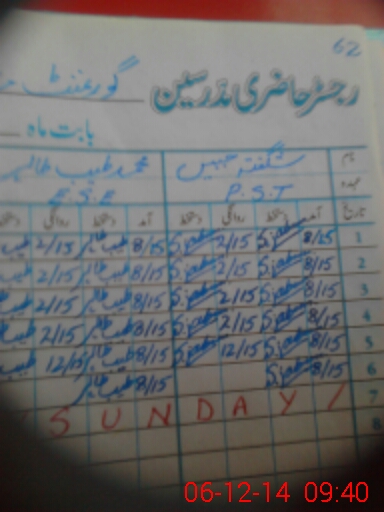 62
رجسٹر حاضری مدرسین گورنمنٹ
بابت ماہ
نام شگفتہ جبیں محمد طیب طاہر
عہدہ P.S.T E.S.E
تاریخ آمد دستخط روانگی دستخط آمد دستخط روانگی دستخط
1 8/15 2/15 8/15 طیب طاہر 2/15 طیب
2 8/15 2/15 8/15 طیب طاہر 2/15 طیب
3 8/15 2/15 8/15 طیب طاہر 2/15 طیب
4 8/15 2/15 8/15 طیب طاہر 2/15 طیب
5 8/15 12/15 8/15 طیب طاہر 12/15 طیب
6 8/15 8/15 طیب طاہر
7 SUNDAY /
8
06-12-14 09:40